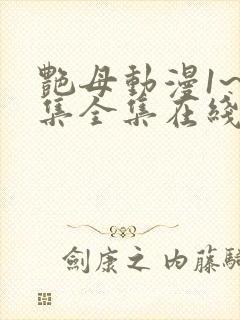 艷母動漫1~
集全集在綫
劍康之內藤騎